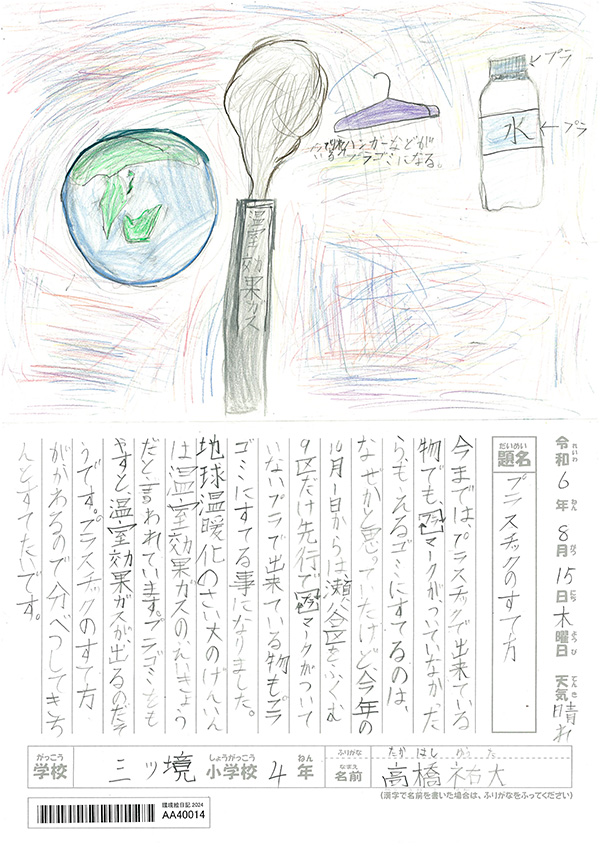 ←プラ
水
←プラ
今後ハンガーなどが
いるプラゴミになる。
温室効果ガス
令和6年8月15日木曜日 天気 晴れ
れいわ ねん がつ にち ようび てんき
だいめい
題名 プラスチックのすて方
今まではプラスチックで出来ている
物でも、プラマークがついていなかった
らもえるゴミにすてるのは、
なぜかと思っていたけど、今年の
10月1日からは瀬谷区をふくむ
9区だけ先行でプラマークがついて
いないプラで出来ている物もプラ
ゴミにすてる事になりました。
地球温暖化のさい大のげんいん
は温室効果ガスのえいきょう
だと言われています。プラゴミをも
やすと、温室効果ガスが出るのだそ
うです。プラスチックのすて方
ががわるので分べつしてきち
んとすてたいです。
がっこう しょうがっこう ねん
学校 三ツ境 小学校 4年
ふりがな たかはし ゆうた
なまえ
名前 高橋祐大
(漢字で名前を書いた場合は、ふりがなをふってください)
環境絵日記 2024
AA40014